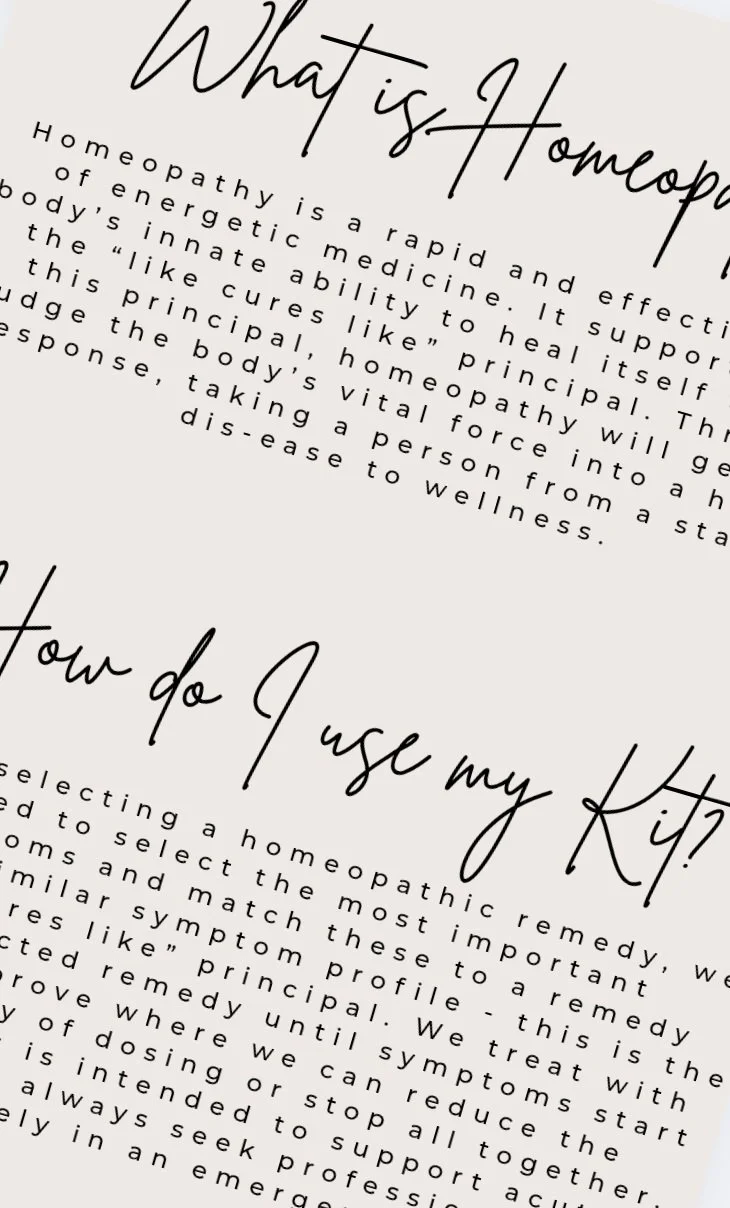 What is Homeop
Homeopathy is a rapid and effecti
of energetic medicine. It suppor
body's innate ability to heal itself
the “like cures like” principal. Thr
this principal, homeopathy will ge
udge the body's vital force into a h
esponse, taking a person from a sta
dis-ease to wellness.
How do I use my Kit?
selecting a homeopathic remedy, we
ed to select the most important
oms and match these to a remedy
imilar symptom profile - this is the
res like” principal. We treat with
cted remedy until symptoms start
prove where we can reduce the
y of dosing or stop all together.
is intended to support acut
always seek professio
ely in an emerge